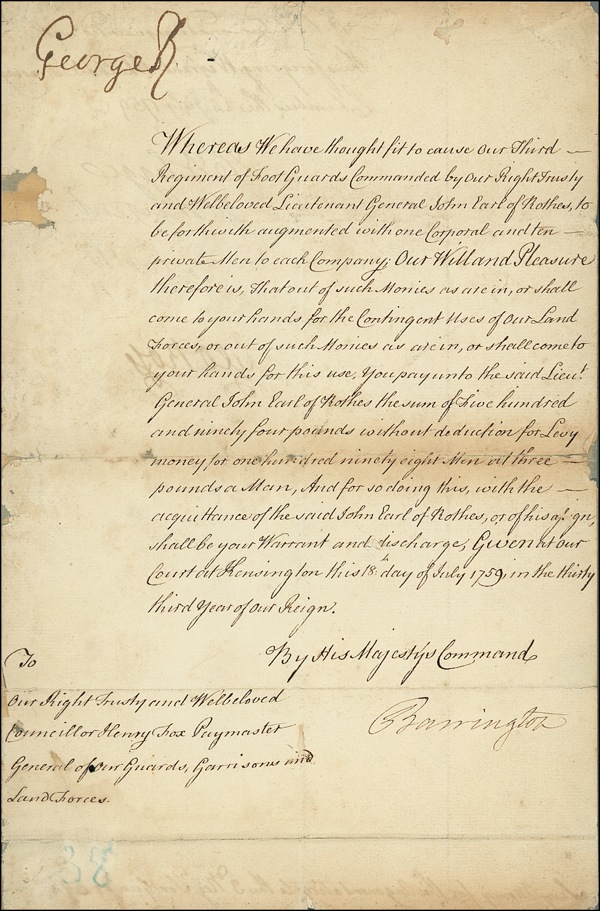 George R
Whereas We have thought fit to cause Our Third
Regiment of Foot Guards Commanded by Our Right Trusty
and Welbeloved Lieutenant General John Earl of Rothes, to
be forthwith augmented with one Corporal and ten
private Men to each Company; Our Will and Pleasure
therefore is, That out of such Monies as are in, or shall
come to your hands for the Contingent Uses of Our Land
Forces, or out of such Monies as are in, or shall come to
your hands for this use, You pay unto the said Lieut.
General John Earl of Rothes the sum of Five hundred
and ninety four pounds without deduction for Levy
money for one hundred ninety eight Men at three
pounds a Man, And for so doing this, with the
acquittance of the said John Earl of Rothes, or of his
shall be your Warrant and discharge, Given at Our
Court at Kensington this 18th day of July 1759, in the thirty
third Year of Our Reign.
By His Majestys Command
To
Our Right Trusty and Welbeloved
Councillor Henry Fox Paymaster
General of our Guards, Garrisons and
Land Forces.
Barrington
33